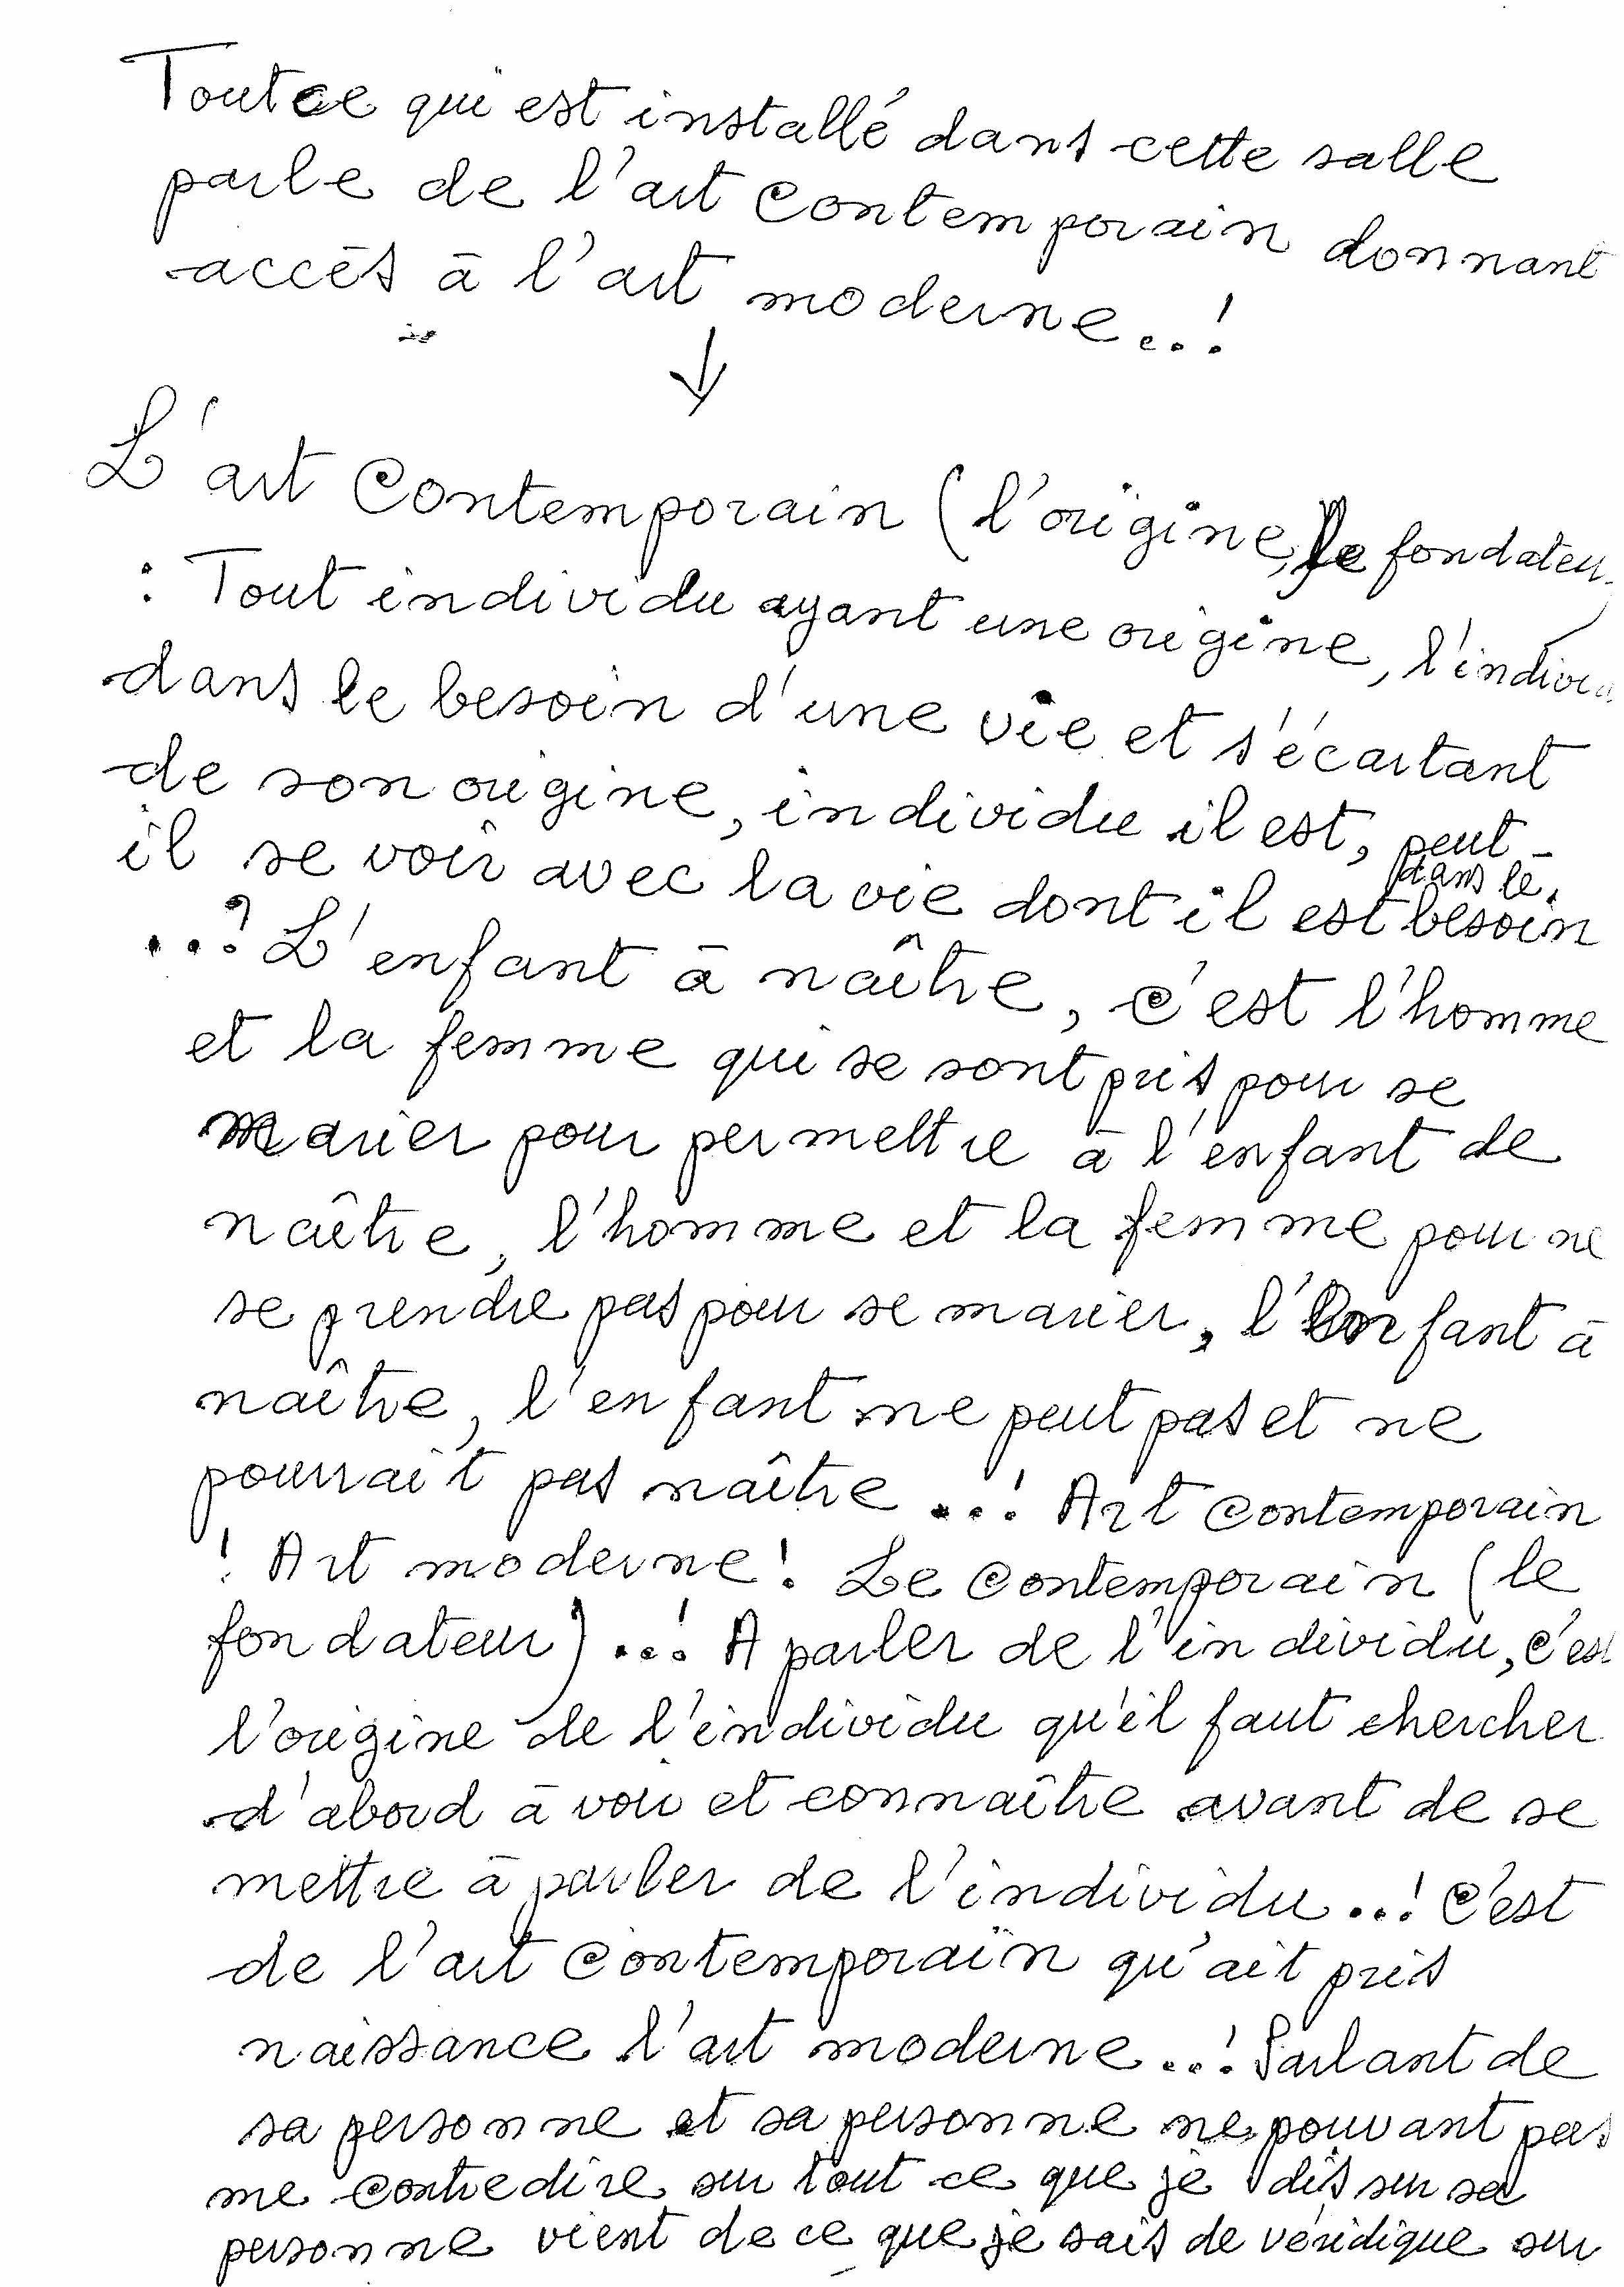 Tout ce qui est installé dans cette salle
parle de l'art Contemporain donnant
accès à l'art moderne..!
↓
L'art Contemporain (l'origine, le fondateur)
: Tout individu ayant une origine, l'individu
dans le besoin d'une vie et s'écartant
de son origine, individu il est, peut-
il se voir avec la vie dont il est dans le besoin
..? L'enfant à naître, c'est l'homme
et la femme qui se sont pris pour se
marier pour permettre à l'enfant de
naître, l'homme et la femme pour ne
se prendre pas pour se marier, l'enfant à
naître, l'enfant ne peut pas et ne
pourrait pas naître ..! Art Contemporain
! Art moderne! Le Contemporain (le
fondateur)..! A parler de l'individu, c'est
l'origine de l'individu qu'il faut chercher
d'abord à voir et connaître avant de se
mettre à parler de l'individu..! C'est
de l'art Contemporain qu'ait pris
naissance l'art moderne..! Parlant de
sa personne et sa personne ne pouvant pas
me contredire sur tout ce que je dis sur sa
personne vient de ce que je sais de véridique sur